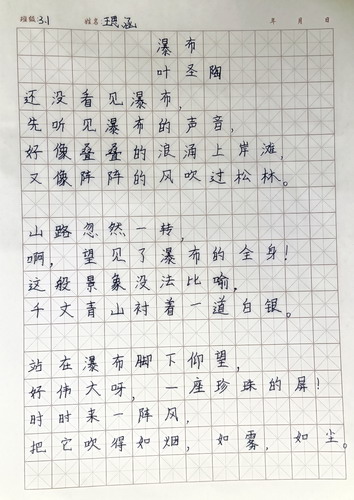 班级 3.1 姓名 王思涵 年 月 日
瀑布
叶圣陶
还没看见瀑布，
先听见瀑布的声音，
好像叠叠的浪涌上岸滩，
又像阵阵的风吹过松林。
山路忽然一转，
啊，望见了瀑布的全身！
这般景象没法比喻，
千丈青山衬着一道白银。
站在瀑布脚下仰望，
好伟大呀，一座珍珠的屏！
时时来一阵风，
把它吹得如烟，如雾，如尘。